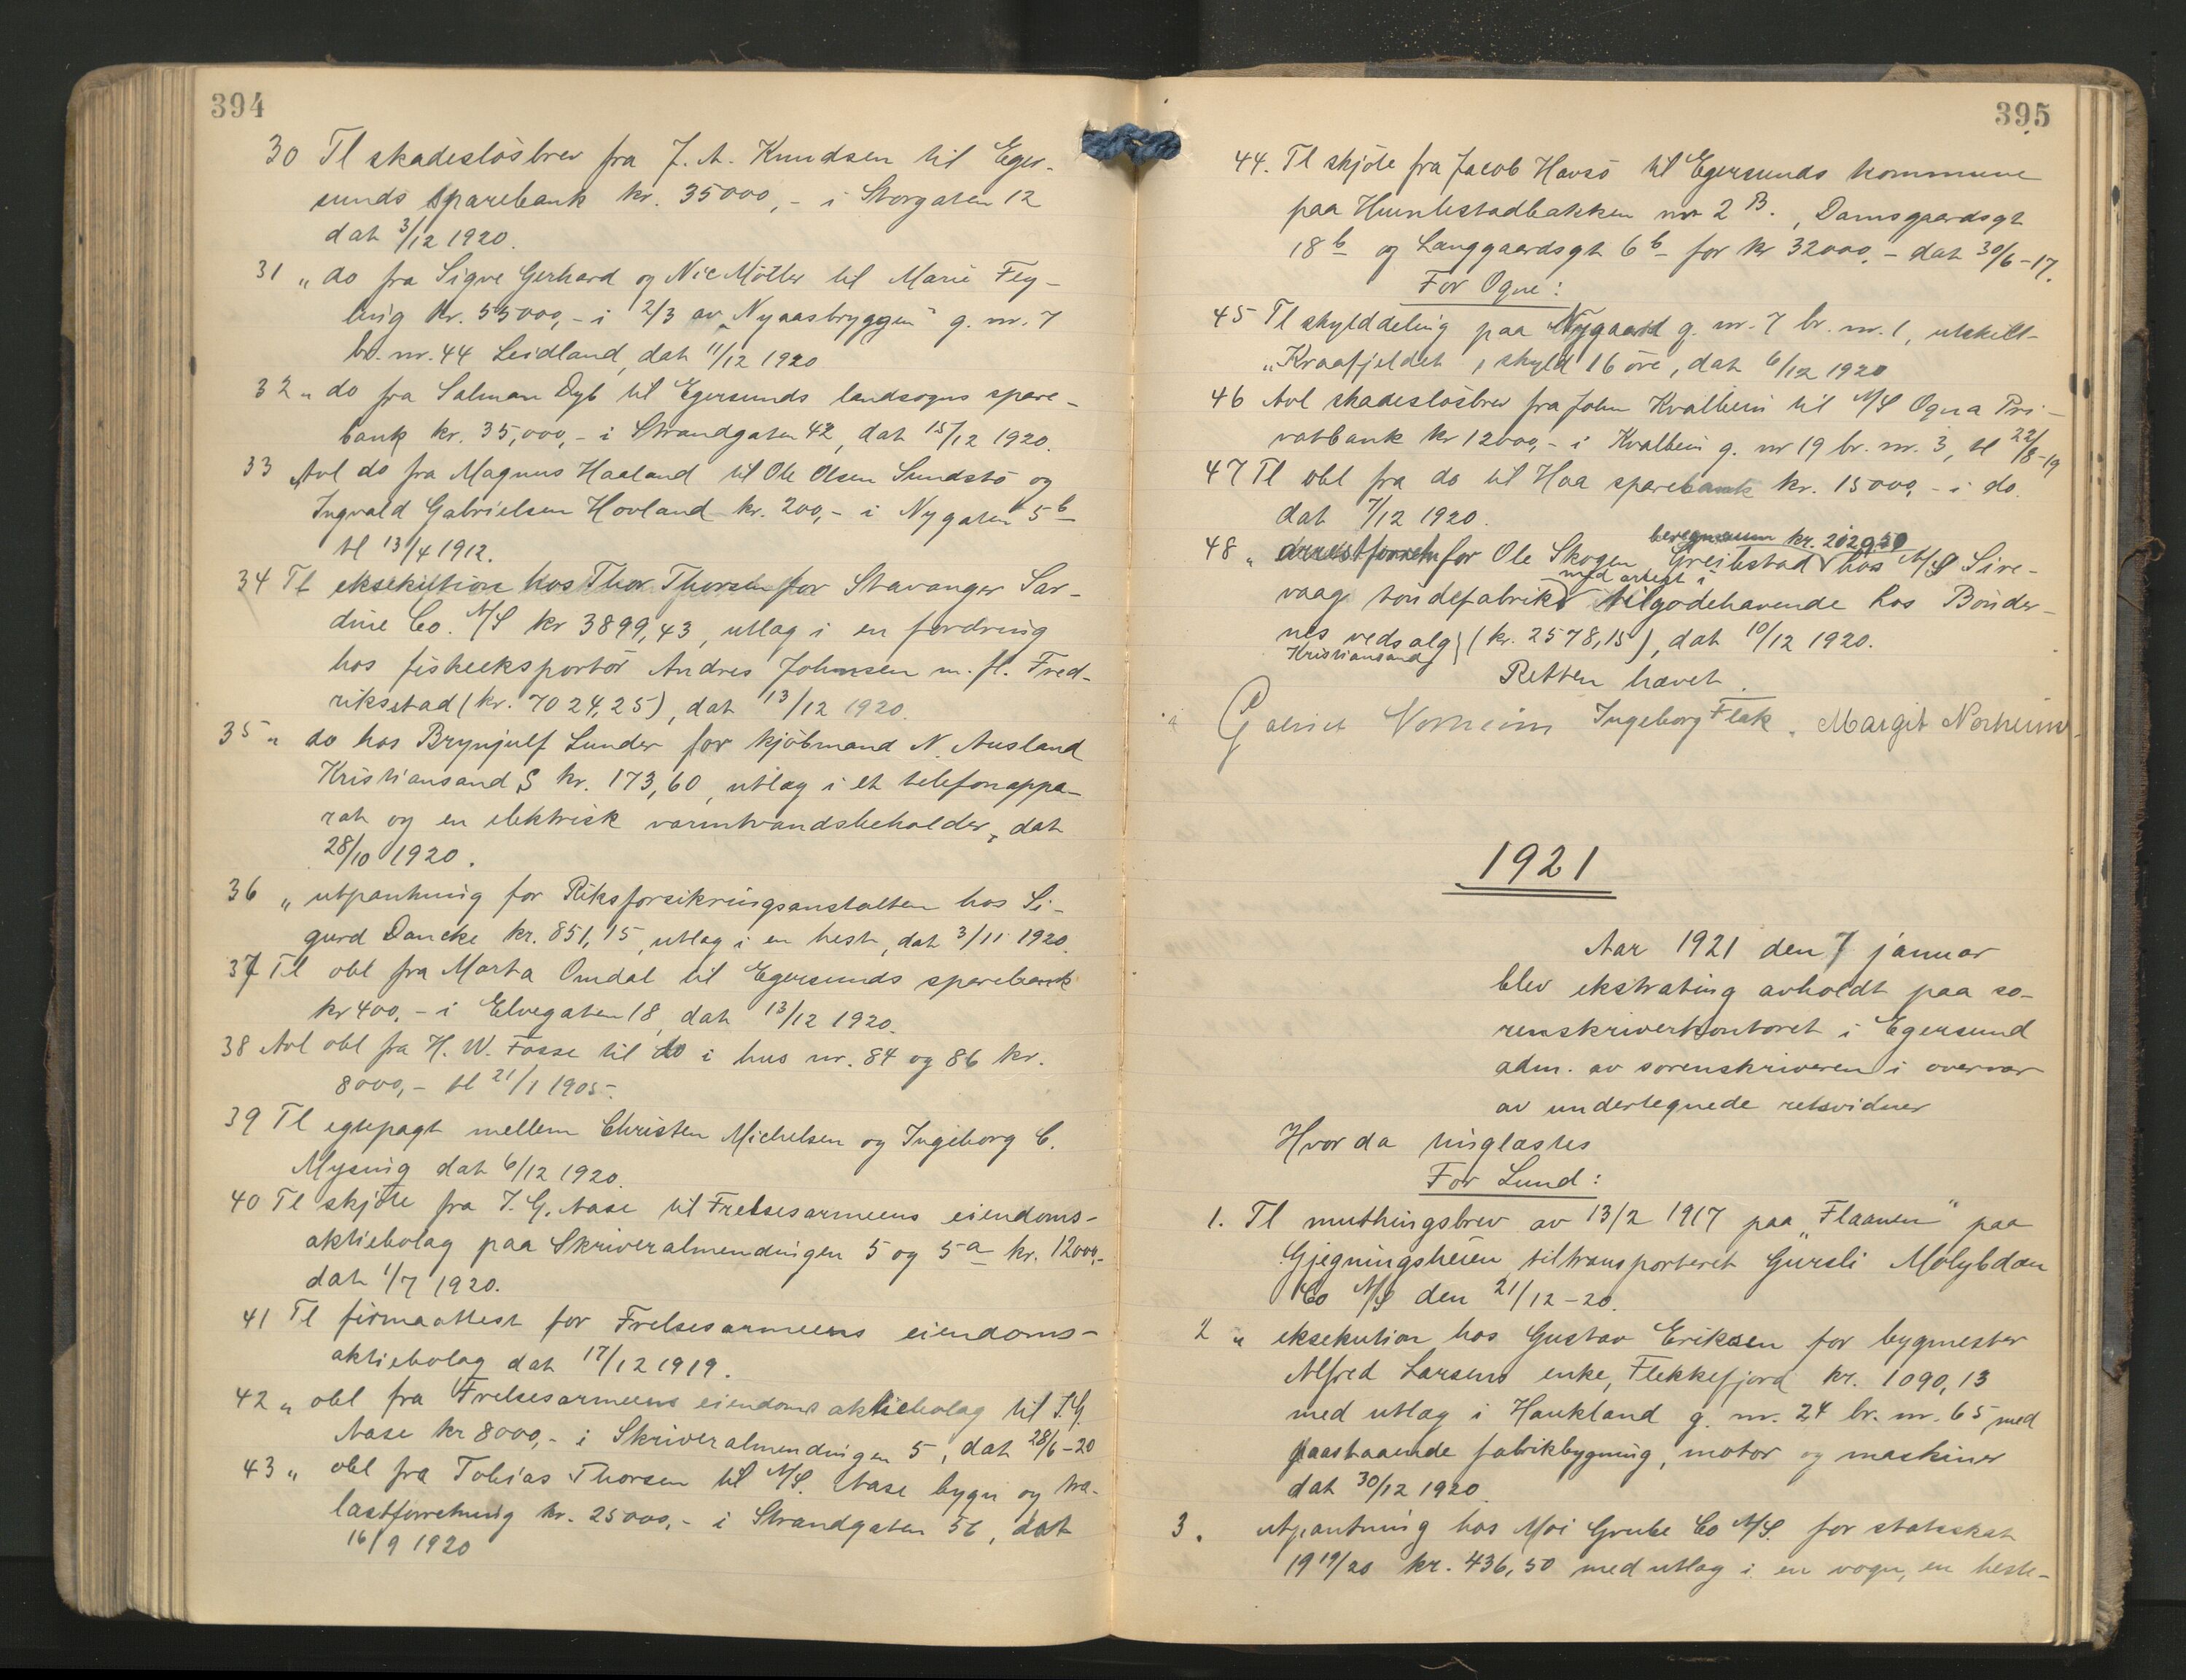 394
30 Tl skadesløsbrev fra J. A. Knudsen til Eger-
sunds Sparebank kr. 35000,- i Storgaten 12
dat 3/12 1920.
31 „ do fra Sigve Gerhard og Nic Møller til Marie Fey-
ling kr. 55000,- i 2/3 av „Nyaasbryggen" g. nr. 7
br. nr. 44 Leidland, dat 11/12 1920
32 „ do fra Salman Dyb til Egersunds landsogns spare-
bank kr. 35,000,- i Strandgaten 42, dat 15/12 1920.
33 Avl do fra Magnus Haaland til Ole Olsen Sundstø og
Ingvald Gabrielsen Hovland kr. 200,- i Nygaten 5b
tl 13/4 1912.
34 Tl eksekution hos Thor Thorsen for Stavanger Sar-
dine Co. A/S kr 3899,43, utlag i en fordring
hos fiskeeksportør Andres Johnsen m. fl. Fred-
riksstad (kr. 7024,25), dat 13/12 1920.
35 „ do hos Brynjulf Lunder for kjøbmand N. Ausland
Kristiansand S kr. 173,60, utlag i et telefonappa-
rat og en elektrisk varmtvandsbeholder, dat
28/10 1920.
36 „ utpantning for Riksforsikringsanstalten hos Si-
gurd Dancke kr. 851,15, utlag i en hest, dat 3/11 1920.
37 Tl obl fra Marta Omdal til Egersunds sparebank
kr 400,- i Elvegaten 18, dat 13/12 1920.
38 Avl obl fra H. W. Fosse til do i hus nr. 84 og 86 kr.
8000,- tl 21/1 1905.
39 Tl egtepagt mellem Christen Michelsen og Ingeborg C.
Mysing dat 6/12 1920.
40 Tl skjøte fra J. G. Aase til Frelsesarmeens eiendoms-
aktiebolag paa Skriveralmendingen 5 og 5a kr. 12000,-
dat 1/7 1920.
41 Tl firmaattest for Frelsesarmeens eiendoms-
aktiebolag dat 17/12 1919.
42 „ obl fra Frelsesarmeens eiendoms aktiebolag til J. G.
Aase kr 8000,- i Skriveralmendingen 5, dat 28/6-20
43 „ obl fra Tobias Thorsen til A/S. Aase bygn og tra-
lastforretning kr. 25000,- i Strandgaten 56, dat
16/9 1920
395
44. Tl skjøte fra Jacob Havsø til Egersunds kommune
paa Humlestadbakken nr 2 B., Damsgaardsgt
18b og Langgaardsgt 6b for kr 32000,- dat 30/6-17.
For Ogne:
45 Tl skylddeling paa Nygaard g. nr. 7 br. nr. 1, utskilt-
„Kraafjeldet, skyld 16 øre, dat 6/12 1920
46 Avl skadesløsbrev fra John Kvalbein til A/S Ogna Pri-
vatbank kr 12000,- i Kvalbein g. nr 19 br. nr. 3, tl 22/8-19
47 Tl obl fra do til Haa sparebank kr. 15000,- i do.
dat 7/12 1920.
beregnsum kr. 2029,50
48 „ arrestforretn for Ole Skogen Greibstad hos A/S Sire-
med arrest i
vaag tøndefabrik tilgodehavende hos Bønder-
nes vedsalg (kr. 2578,15), dat 10/12 1920.
Kristiansand
Retten hævet.
Gabriel Norheim Ingeborg Fløk. Margit Norheim
1921
Aar 1921 den 7 januar
blev ekstrating avholdt paa so-
renskriverkontoret i Egersund
adm. av sorenskriveren i overvær
av undertegnede retsvidner
Hvor da tinglæstes
For Lund:
1. Tl muthingsbrev av 13/2 1917 paa „Flaanen" paa
Gjegningsheien tiltransporteret Gursli Molybdæn
Co A/S den 21/12-20.
2 „ eksekution hos Gustav Eriksen for bygmester
Alfred Larsens enke, Flekkefjord kr. 1090,13
med utlag i Haukland g. nr. 24 br. nr. 65, med
paastaaende fabrikbygning, motor og maskiner
dat 30/12 1920.
3. utpantning hos Moi Grube Co A/S. for statsskat
1919/20 kr. 436,50 med utlag i en vogn, en heste-